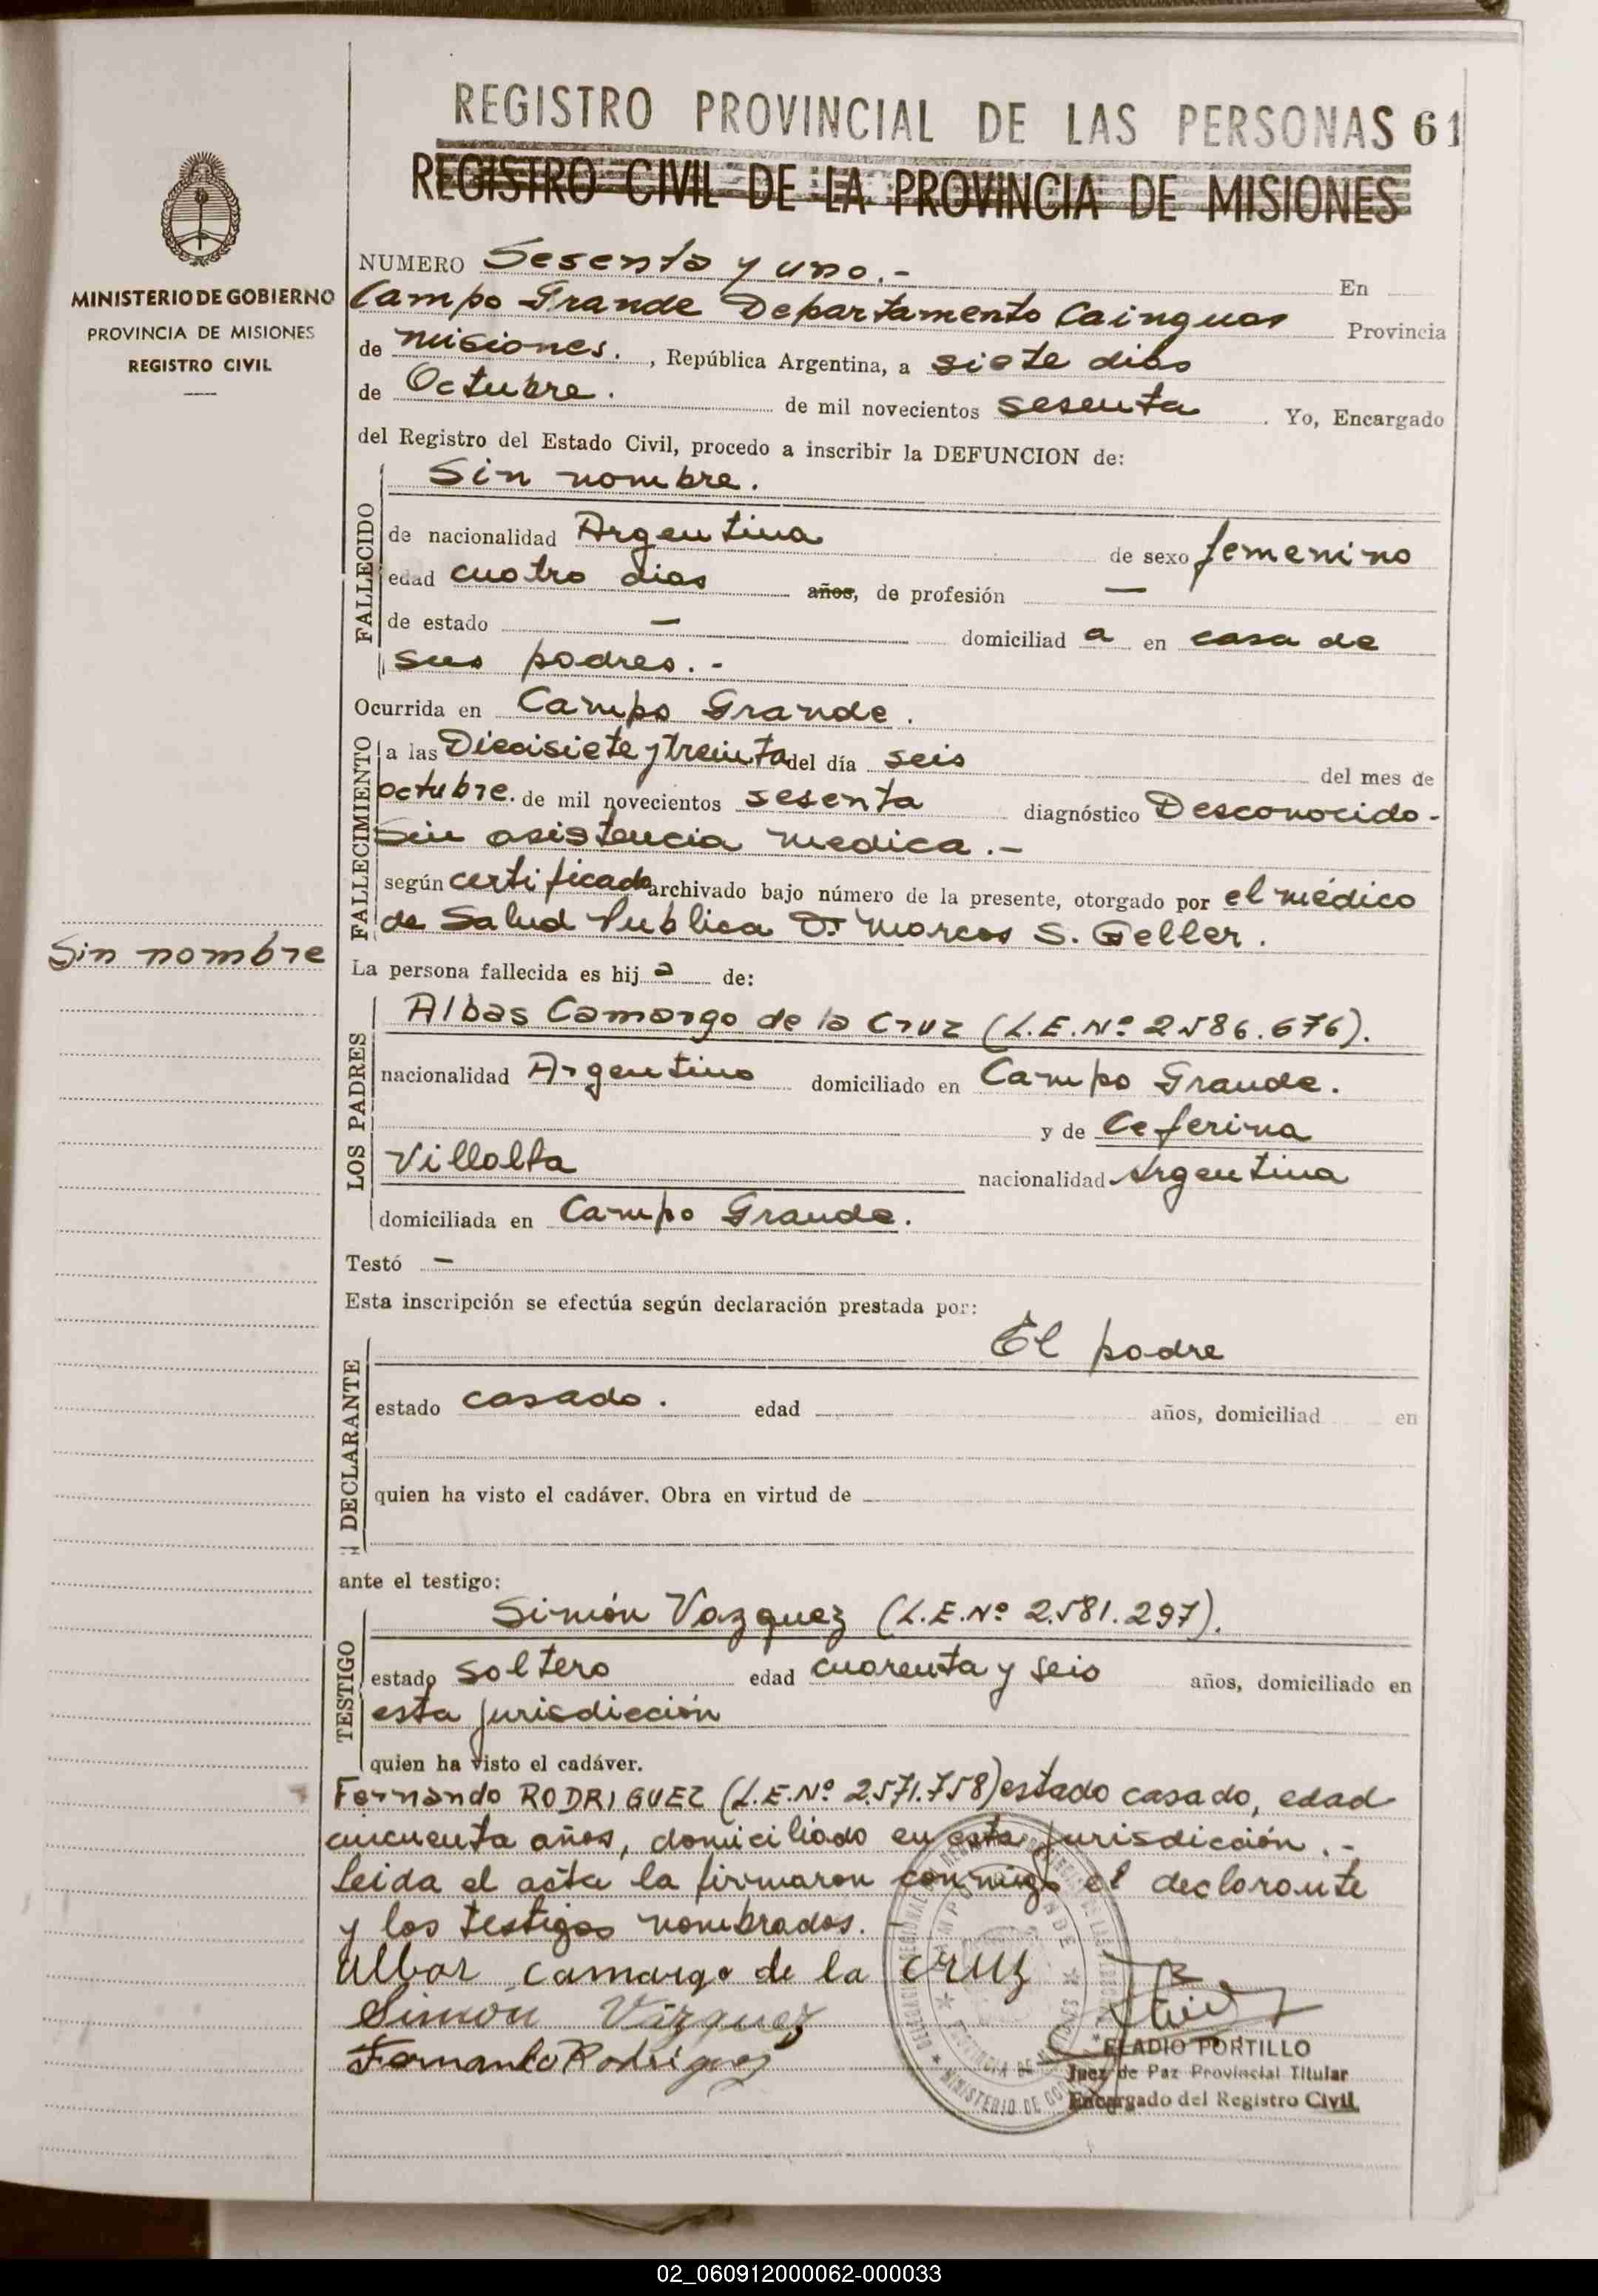 REGISTRO PROVINCIAL DE LAS PERSONAS 61
REGISTRO CIVIL DE LA PROVINCIA DE MISIONES
MINISTERIO DE GOBIERNO
PROVINCIA DE MISIONES
REGISTRO CIVIL
NUMERO Sesenta y uno.- En
Campo Grande Departamento Cainguas Provincia
de Misiones. , República Argentina, a siete dias
de Octubre. de mil novecientos sesenta . Yo, Encargado
del Registro del Estado Civil, procedo a inscribir la DEFUNCION de:
FALLECIDO
Sin nombre.
de nacionalidad Argentina de sexo femenino
edad cuatro dias años, de profesión —
de estado — domiciliad a en casa de
sus padres.-
Ocurrida en Campo Grande.
FALLECIMIENTO
a las Diecisiete y treinta del día seis del mes de
octubre. de mil novecientos sesenta diagnóstico Desconocido-
Sin asistencia medica.-
según certificado archivado bajo número de la presente, otorgado por el médico
de Salud Publica Dr Marcos S. Geller.
Sin nombre
La persona fallecida es hij a de:
LOS PADRES
Albas Camargo de la Cruz (L.E.Nº 2586.676).
nacionalidad Argentino domiciliado en Campo Grande.
y de Ceferina
Villalta nacionalidad Argentina
domiciliada en Campo Grande.
Testó —
Esta inscripción se efectúa según declaración prestada por:
DECLARANTE
El padre
estado casado. edad años, domiciliad en
quien ha visto el cadáver. Obra en virtud de
ante el testigo:
TESTIGO
Simón Vazquez (L.E.Nº 2.581.297).
estado soltero edad cuarenta y seis años, domiciliado en
esta jurisdicción
quien ha visto el cadáver.
Fernando RODRIGUEZ (L.E.Nº 2.571.758) estado casado, edad
cincuenta años, domiciliado en esta jurisdicción.-
Leida el acta la firmaron conmigo el declarante
y los testigos nombrados.
Albar camargo de la cruz
Simón Vázquez
Fernando Rodriguez
ELADIO PORTILLO
Juez de Paz Provincial Titular
Encargado del Registro Civil
02_060912000062-000033